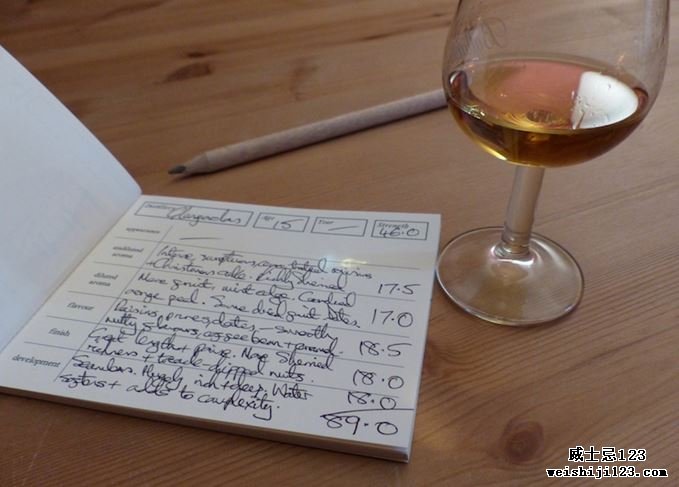 Distillery Glengoyne Age 15 Year — Strength 46.0
appearance —
undiluted aroma Intense, sumptuous, raisins
+ Christmas cake. Richly sherried 17.5
diluted aroma More fruit, with edge. Candied
orange peel. Some dried fruit dates. 17.0
flavour Raisins, prunes, dates – smoothly
nutty flavours, coffee bean + caramel. 18.5
finish Great length + poise. More Sherried
richness + treacle-dipped nuts. 18.0
development Seamless. Hugely rich + deep. Water
softens + adds to complexity. 18.0
89.0
威士忌123
weishiji123.com